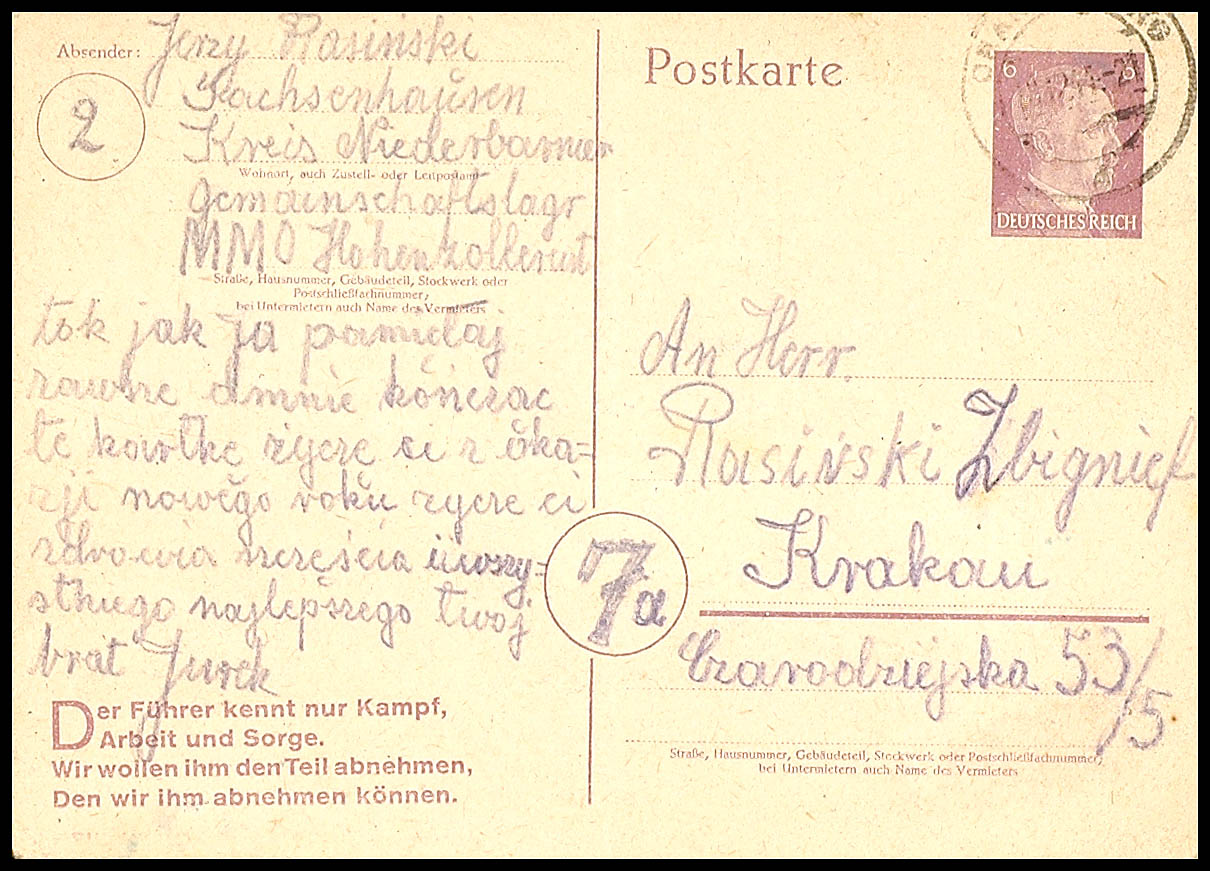 Absender: Jerzy Rasinski
2
Sachsenhausen
Kreis Niederbarnim
Wohnort, auch Zustell- oder Leitpostamt
Gemainschaftslagr
MMO Hohenzollernst
Straße, Hausnummer, Gebäudeteil, Stockwerk oder
Postschließfachnummer;
bei Untermietern auch Name des Vermieters
tok jak Ja pamiętaj
zawsze omnie kończac
te kartkę życzę ci z oka=
zji nowego roku zycze ci
zdrowia szczęścia i wszy=
stkiego najlepszego twoj
brat Jurek
Der Führer kennt nur Kampf,
Arbeit und Sorge.
Wir wollen ihm den Teil abnehmen,
Den wir ihm abnehmen können.
Postkarte
6 6
DEUTSCHES REICH
An Herr.
Rasiński Zbignief
7a
Krakau
Czarodziejska 53/5
Straße, Hausnummer, Gebäudeteil, Stockwerk oder Postschließfachnummer;
bei Untermietern auch Name des Vermieters